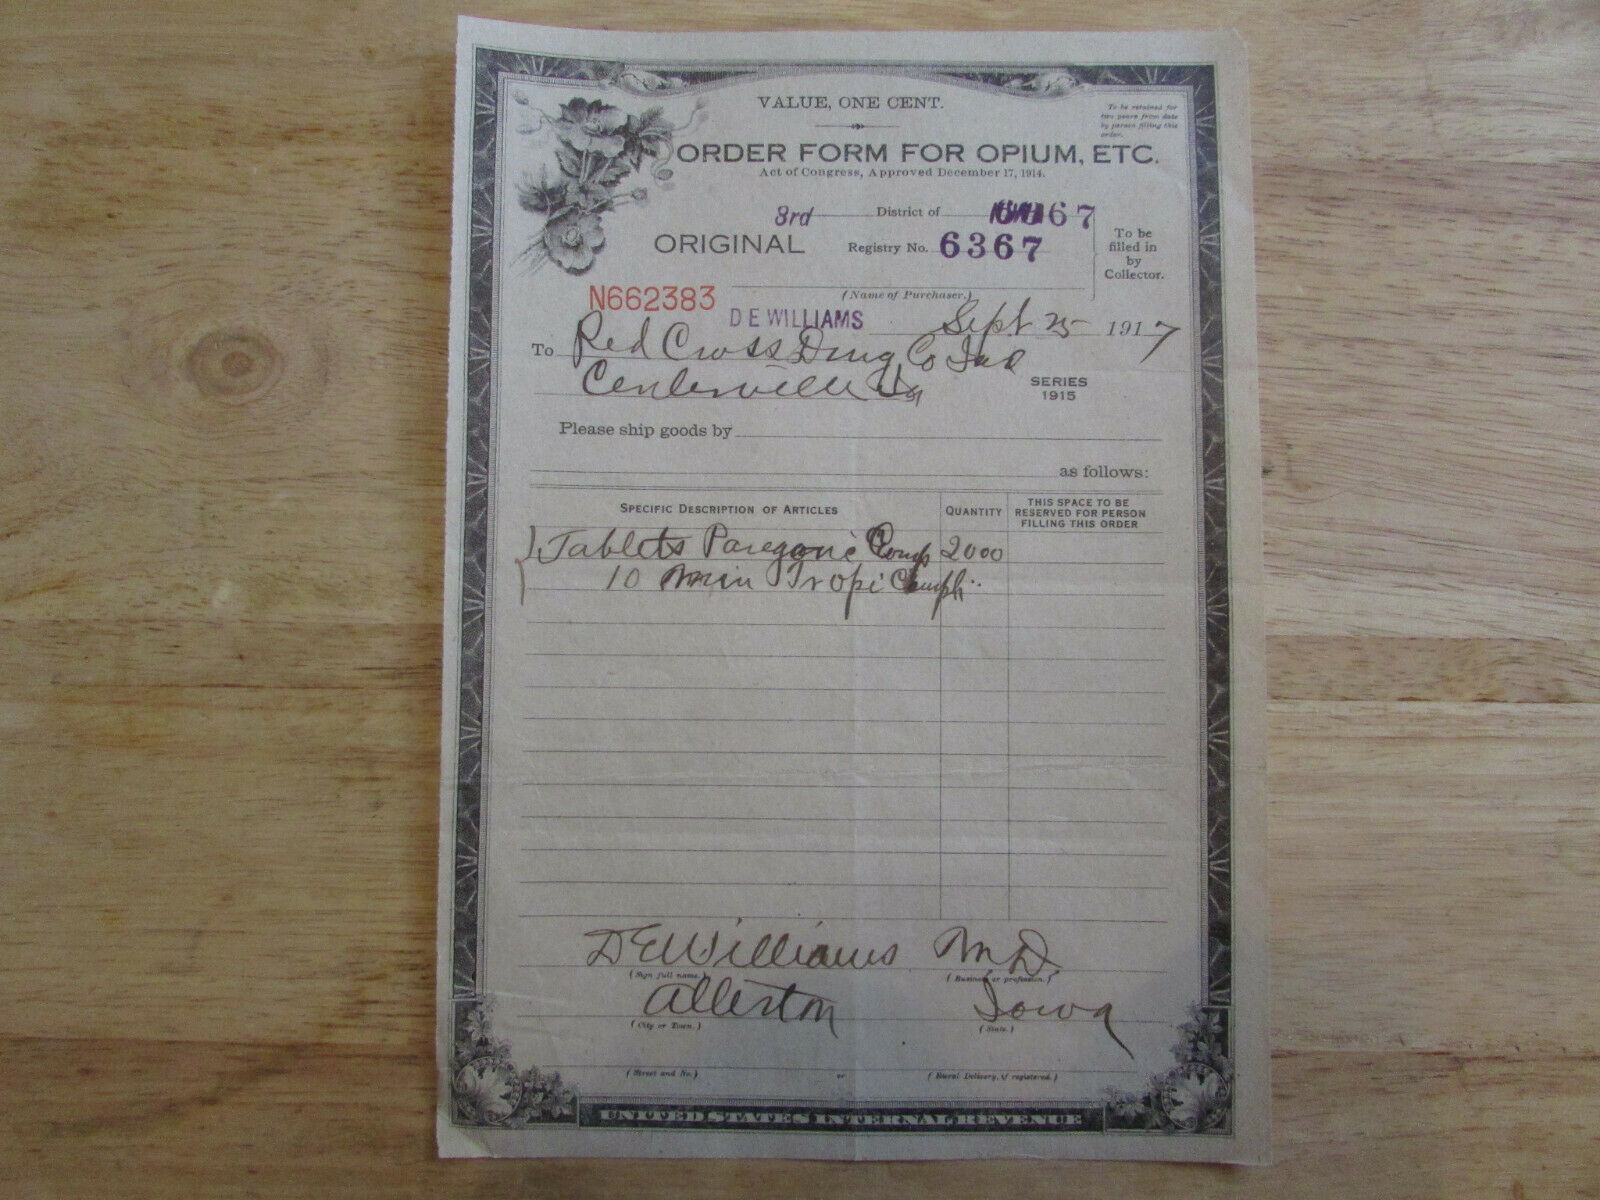 VALUE, ONE CENT.
To be retained for
two years from date
by person filling this
order.
ORDER FORM FOR OPIUM, ETC.
Act of Congress, Approved December 17, 1914.
3rd District of 67
ORIGINAL Registry No. 6367
To be
filled in
by
Collector.
(Name of Purchaser.)
N662383 D E WILLIAMS Sept 25 1917
To Red Cross Drug Co
Centerville Ia
SERIES
1915
Please ship goods by
as follows:
SPECIFIC DESCRIPTION OF ARTICLES QUANTITY THIS SPACE TO BE
RESERVED FOR PERSON
FILLING THIS ORDER
Tablets Paregoric Comp 2000
10 Min Tr Opi Camph
D E Williams M.D.
(Sign full name.) (Business or profession.)
Allerton Iowa
(City or Town.) (State.)
(Street and No.) or (Rural Delivery, if registered.)
UNITED STATES INTERNAL REVENUE